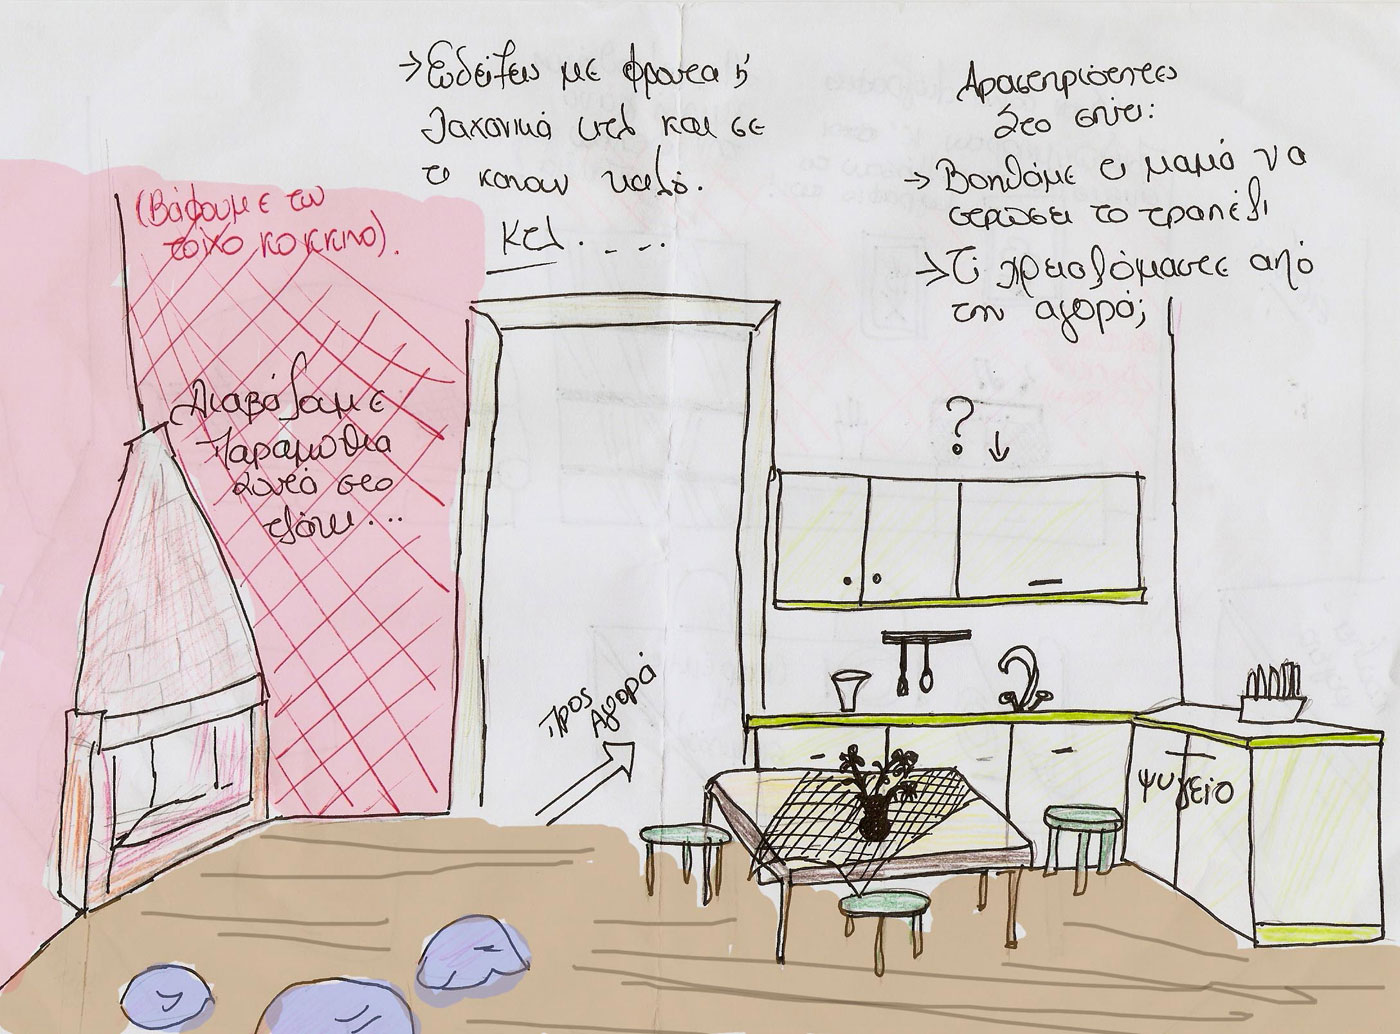 → με φρουτα ή
λαχανικά και σε
το καλαθι
κτλ. . . . .
Δραστηριότητες
Στο σπίτι:
→ Βοηθάμε τη μαμά να
στρώσει το τραπέζι
→ Τι χρειαζόμαστε από
την αγορά;
(Βάφουμε τον
τοίχο κοκκινο).
Διαβάζουμε
Παραμύθια
κοντά στο
τζάκι...
?
Προς
Αγορά
ψυγείο